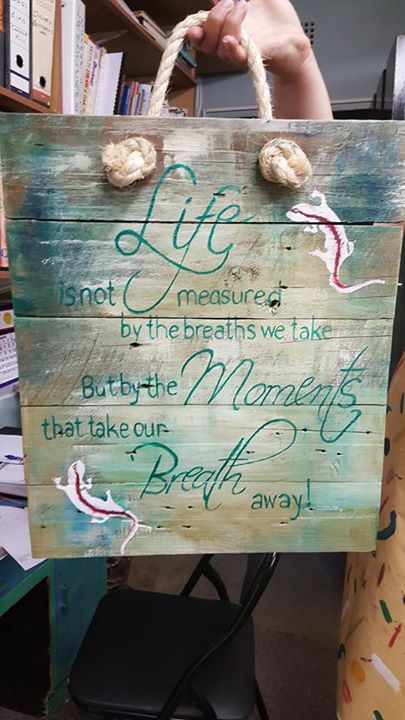 Life
is not measured
by the breaths we take
But by the Moments
that take our
Breath away!